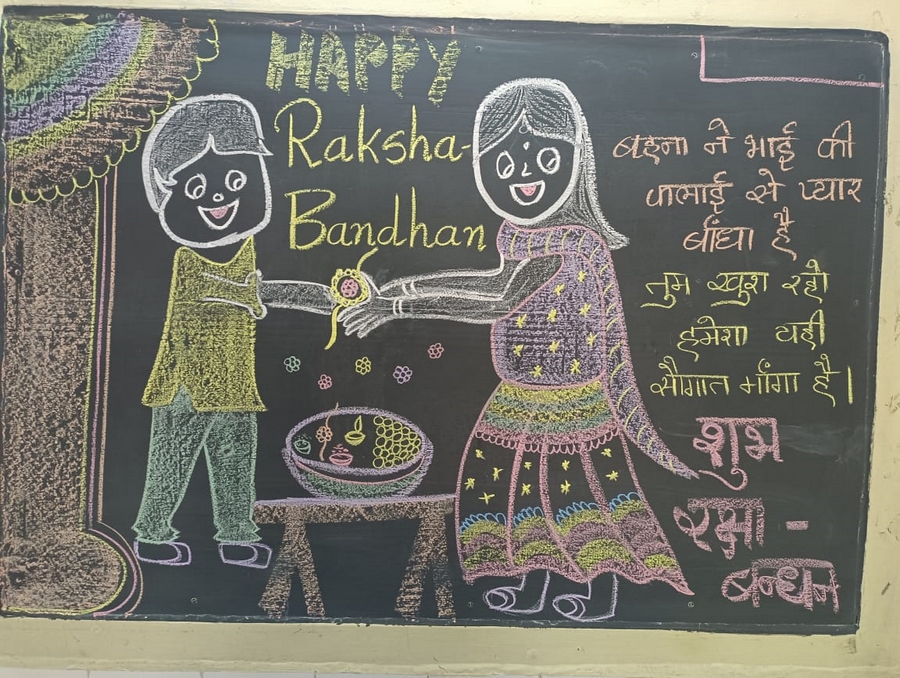 HAPPY
Raksha-
Bandhan
बहना ने भाई की
कालाई से प्यार
बाँधा है
तुम खुश रहो
हमेशा यही
सौगात माँगा है।
शुभ
रक्षा-
बन्धन